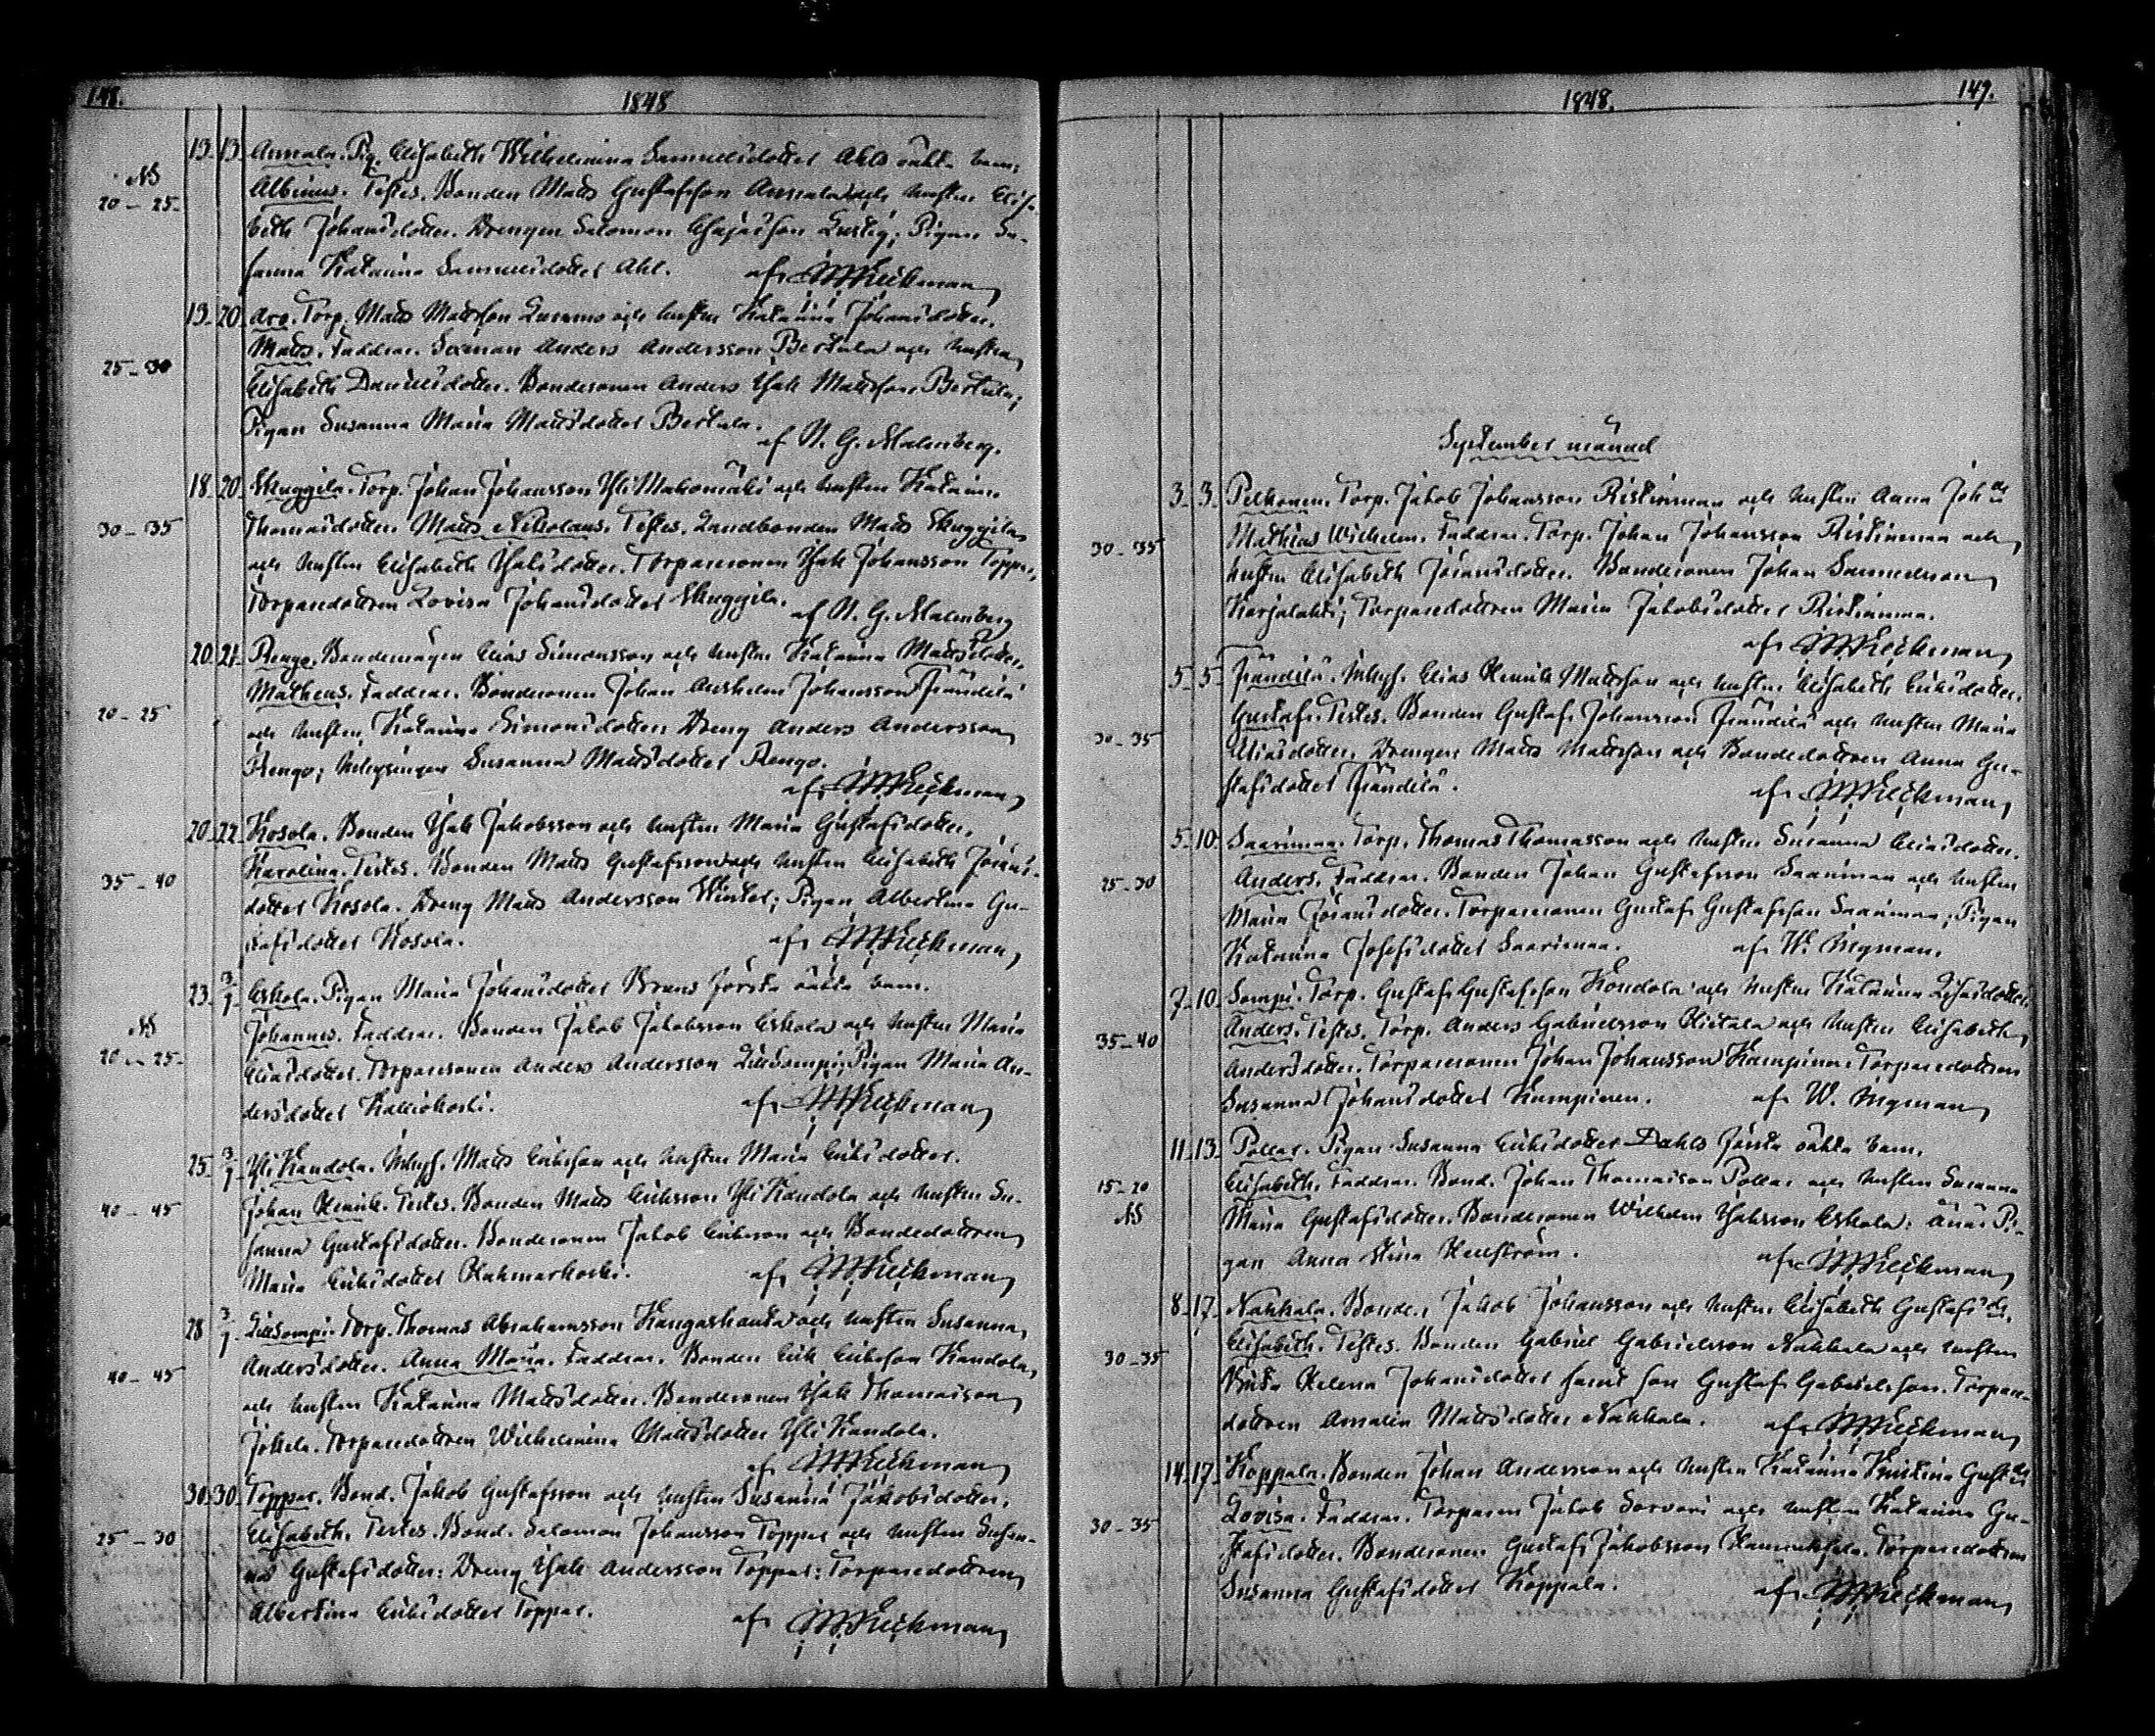 148.
1848
13. 13. Annala. Pig. Elisabeth Wilhelmina Samuelsdotter Ahls oäkta barn,
NB
20 - 25.
Albinus. Testes. Bonden Matts Gustafsson Annala och hustru Elisa-
beth Johansdotter. Drengen Salomon Esajasson Lustig, Pigan Su-
sanna Katarina Samuelsdotter Ahl. af
13. 20. Aro. Torp. Matts Mattsson och hustru Katarina Johansdotter,
25 - 30
Matts. Faddrar. Sexman Anders Andersson Bertula och hustru
Elisabeth Danielsdotter. Bondesonen Anders Isak Mattsson Bertula;
Pigan Susanna Maria Mattsdotter Bertula.
af N. G. Malmberg.
18. 20. Skuggila. Torp. Johan Johansson Yli Makomäki och hustru Katarina
30 - 35
Thomasdotter. Matts Nikolaus. Testes. Landbonden Matts Skuggila
och hustru Elisabeth Isaksdotter. Torparesonen Isak Johansson Toppar,
Torparedottren Lovisa Johansdotter Skuggila.
af N. G. Malmberg
20. 21. Rengo. Bondemågen Elias Simonsson och hustru Katarina Mattsdotter,
20 - 25
Matheus. Faddrar. Bondesonen Johan Anshelm Johansson Frändilä
och hustru Katarina Simonsdotter. Dreng Anders Andersson
Rengo; Inhysingen Susanna Mattsdotter Rengo.
af
20. 22. Kosola. Bonden Isak Jakobsson och hustru Maria Gustafsdotter,
35 - 40
Karolina. Testes. Bonden Matts Gustafsson och hustru Elisabeth Jörans-
dotter Kosola. Dreng Matts Andersson Winter; Pigan Albertina Gu-
stafsdotter Kosola. af
23. 3/7 Eskola. Pigan Maria Johansdotter Bruns första oäkta barn.
NB
20 - 25.
Johannes. Faddrar. Bonden Jakob Jakobsson Eskola och hustru Maria
Eliasdotter. Torparesonen Anders Andersson Lillsompi; Pigan Maria An-
dersdotter Kalliokoski. af
25. 3/7 Yli Kandola. Inhys. Matts Eriksson och hustru Maria Eriksdotter.
40 - 45
Johan Henrik. Testes. Bonden Matts Eriksson Yli Kandola och hustru Su-
sanna Gustafsdotter. Bondesonen Jakob Eriksson och Bondedottren
Maria Eriksdotter Rahmarkoski. af
28 3/7 Lillsompi. Torp. Thomas Abrahamsson Kangashauta och hustru Susanna
40 - 45
Andersdotter. Anna Maria. Faddrar. Bonden Erik Eriksson Kandola
och hustru Katarina Mattsdotter. Bondesonen Isak Thomasson
Jokela. Torparedottren Wilhelmina Mattsdotter Yli Kandola.
af
30. 30. Toppar. Bond. Jakob Gustafsson och hustru Susanna Jakobsdotter.
25 - 30
Elisabeth. Testes. Bond. Salomon Johansson Toppar och hustru Susan-
na Gustafsdotter: Dreng Isak Andersson Toppar: Torparedottren
Albertina Eriksdotter Toppar. af
149.
1848.
September månad
3. 3. Pelkonen. Torp. Jakob Johansson Ristiinmaa och hustru Anna Johdr
30 - 35
Mathias Wilhelm. Faddrar. Torp. Johan Johansson Ristiinmaa och
hustru Elisabeth Jöransdotter. Bondesonen Johan Samuelsson
Karjalahti; Torparedottren Maria Jakobsdotter Ristiinmaa.
af
5. 5. Frändilä. Inhys. Elias Henrik Mattsson och hustru Elisabeth Eriksdotter.
30 - 35
Gustaf. Testes. Bonden Gustaf Johansson Frändilä och hustru Maria
Eliasdotter. Drengen Matts Mattsson och Bondedottren Anna Gu-
stafsdotter Frändilä. af
5. 10. Saarimaa. Torp. Thomas Thomasson och hustru Susanna Eliasdotter.
25 - 30
Anders. Faddrar. Bonden Johan Gustafsson Saarimaa och hustru
Maria Jöransdotter. Torparesonen Gustaf Gustafsson Saarimaa; Pigan
Katarina Josefsdotter Saarimaa. af W. Nyman.
7. 10. Sompi. Torp. Gustaf Gustafsson Kondola och hustru Katarina
35 - 40
Anders. Testes. Torp. Anders Gabrielsson Hietala och hustru Elisabeth
Andersdotter. Torparesonen Johan Johansson Kampinen Torparedottren
Susanna Johansdotter Kampinen. af W. Nyman
11. 13. Pollar. Pigan Susanna Eriksdotter Dahls första oäkta barn.
15 - 20
NB
Elisabeth. Faddrar. Bond. Johan Thomasson Pollar och hustru Susanna
Maria Gustafsdotter. Bondesonen Wilhelm Isaksson Eskola: Pi-
gan Anna Stina Hellström. af
8. 17. Nahkala. Bond. Jakob Johansson och hustru Elisabeth Gustafsdr.
30 - 35
Elisabeth. Testes. Bonden Gabriel Gabrielsson Nahkala och hustru
Brita Helena Johansdotter samt son Gustaf Gabrielsson. Torpare-
dottren Amalia Mattsdotter Nahkala. af
14. 17. Koppala. Bonden Johan Andersson och hustru Katarina Kristina Gustdr
30 - 35
Lovisa. Faddrar. Torparen Jakob Sorvari och hustru Katarina Gu-
stafsdotter. Bondesonen Gustaf Jakobsson Torparedottren
Susanna Gustafsdotter Koppala. af